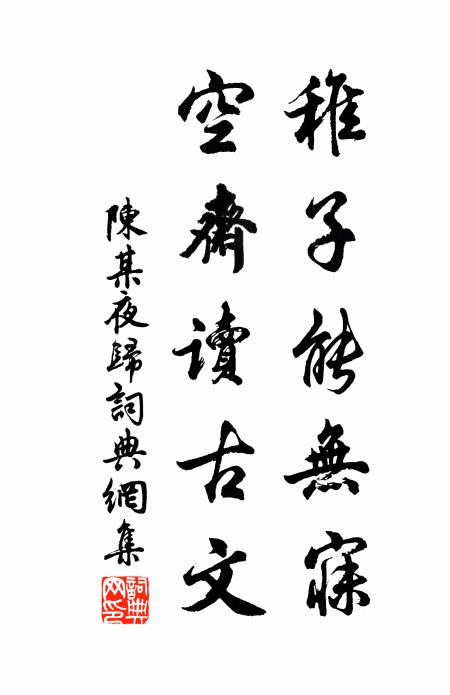 稚子能無寐
空齋讀古文
陳某夜歸詞典網集
詞典網印